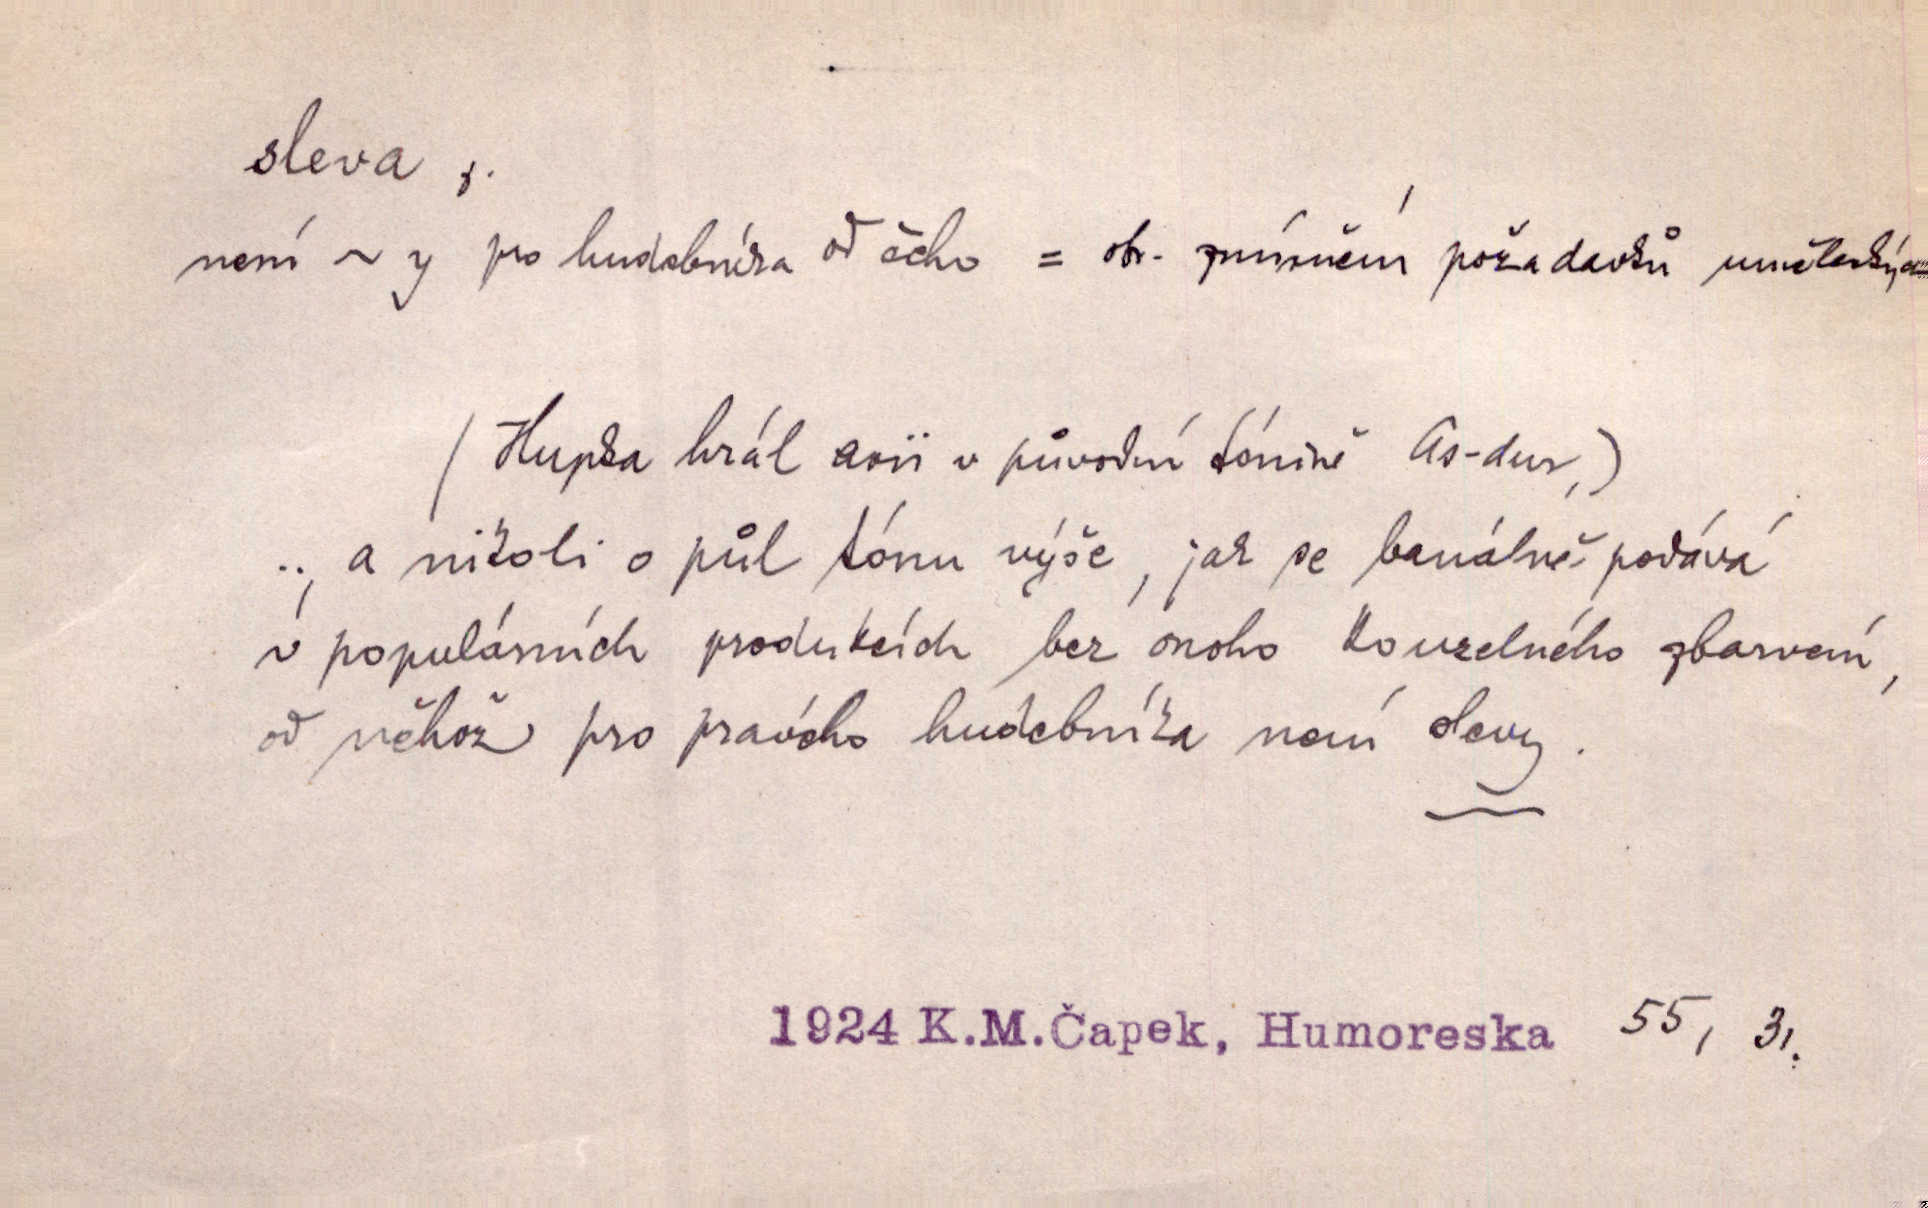 sleva f.
není ~y pro hudebníka od čeho = obr. zmírnění požadavků uměleckých
(Hupka hrál arii v původní tónině As-dur,)
.., a nikoli o půl tónu výše, jak se banálně podává
v populárních produkcích bez onoho kouzelného zbarvení,
od něhož pro pravého hudebníka není slevy.
1924 K.M.Čapek, Humoreska 55, 31.